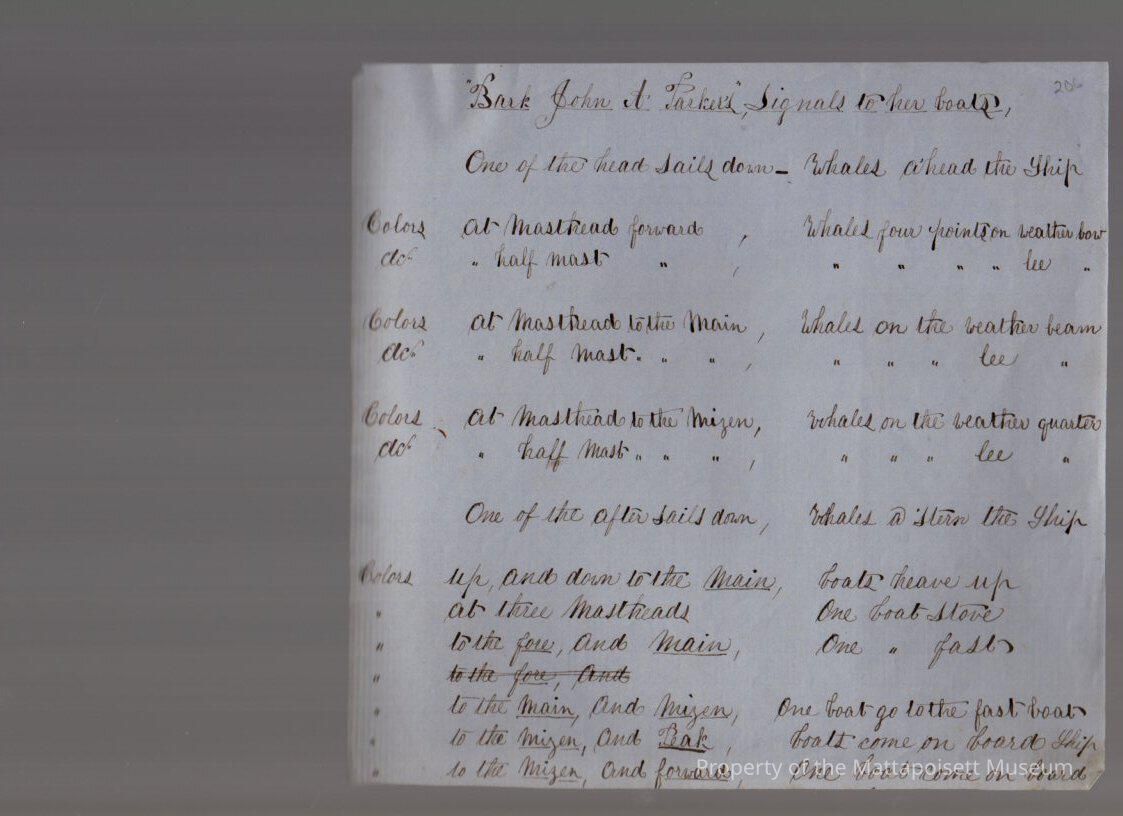 206
"Bark John A. Parker's", Signals to her boats,
One of the head sails down - Whales a'head the Ship
Colors at Masthead forward , Whales four points on weather bow
do " half mast " , " " " " lee "
Colors at Masthead to the Main , Whales on the weather beam
do " half Mast " " " , " " " lee "
Colors at Masthead to the Mizen, Whales on the weather quarter
do " half Mast " " " , " " " lee "
One of the after sails down, Whales a'stern the Ship
Colors up, and down to the Main, boats heave up
" at three Mastheads One boat stove
" to the fore, and Main, One " fast
" to the fore, and
" to the Main, and Mizen, One boat go to the fast boat
" to the Mizen, and Peak , boats come on board Ship
" to the Mizen, and forward, One boat come on board
Property of the Mattapoisett Museum